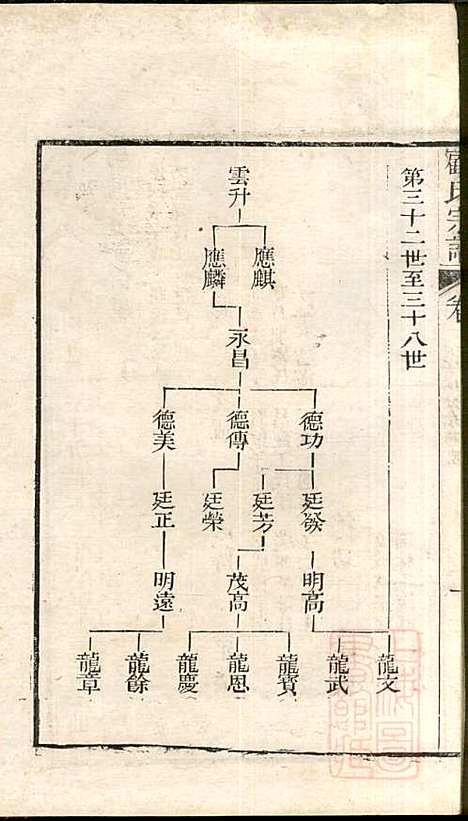 氏宗譜 卷
第三十二世至三十八世
雲升
應麒 應麟
永昌
德功 德傳 德美
廷發 廷芳 廷榮 廷正
明高 茂高 明遠
龍文 龍武 龍寶 龍恩 龍慶 龍餘 龍章